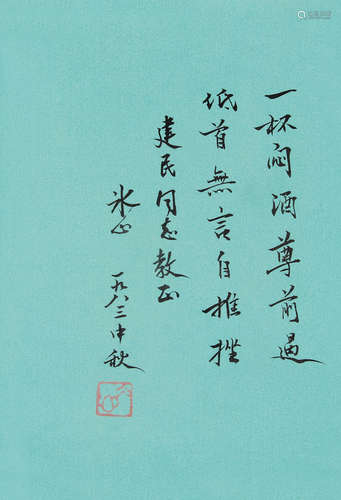 一杯闷酒尊前過
低首無言自推挫
建民同志教正
冰心 一九八三中秋